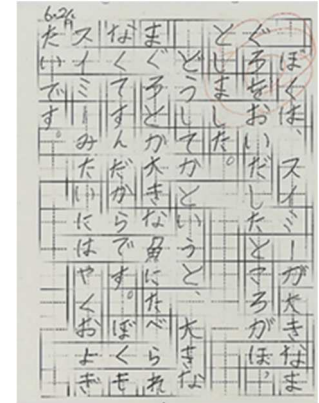 6.26
ぼくは、スイミーが大きなま
ぐろをおいだしたところがほっ
としました。
どうしてかというと、大きな
まぐろとか大きな魚にたべられ
なくてすんだからです。ぼくも
スイミーみたいにはやくおよぎ
たいです。